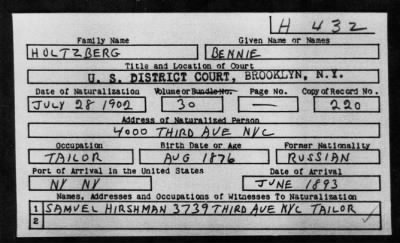 H 432
Family Name Given Name or Names
HOLTZBERG BENNIE
Title and Location of Court
U. S. DISTRICT COURT, BROOKLYN, N.Y.
Date of Naturalization Volume or Bundle No. Page No. Copy of Record No.
JULY 28 1902 30 — 220
Address of Naturalized Person
4000 THIRD AVE NYC
Occupation Birth Date or Age Former Nationality
TAILOR AUG 1876 RUSSIAN
Port of Arrival in the United States Date of Arrival
NY NY JUNE 1893
Names, Addresses and Occupations of Witnesses To Naturalization
1 SAMUEL HIRSHMAN 3739 THIRD AVE NYC TAILOR
2